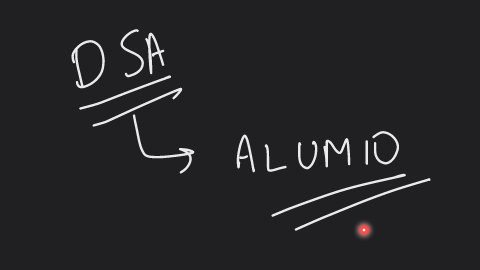 DSA
ALUMIO